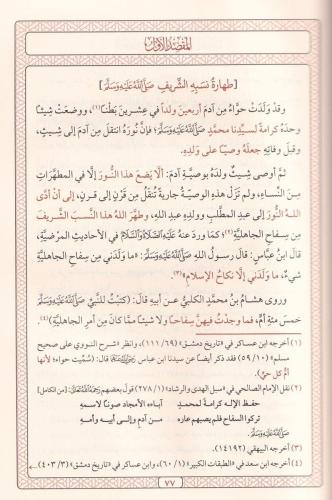 المقصد الأول
[طهارة نسبه الشريف ﷺ]
وقد وَلَدَتْ حوَّاءُ من آدمَ أربعينَ ولداً في عشرينَ بَطْناً(١)، ووضعَتْ شِيثاً
وحدَه كرامةً لسيِّدنا محمَّدٍ ﷺ؛ فإنَّ نُورَهُ انتقلَ مِن آدمَ إلى شِيثٍ،
وقبلَ وفاتِه جعلَهُ وصيّاً على ولدِه.
ثمَّ أوصى شِيثٌ ولدَه بوصيَّةِ آدمَ: ألَّا يَضعَ هذا النُّورَ إلَّا في المطهَّراتِ
مِنَ النِّساءِ، ولم تَزَلْ هذه الوصيَّةُ جاريةً تُنقَلُ مِن قَرْنٍ إلى قرنٍ، إلى أنْ أدَّى
اللهُ النُّورَ إلى عبدِ المطَّلبِ وولدِه عبدِ الله، وطهَّرَ اللهُ هذا النَّسبَ الشَّريفَ
مِن سِفاحِ الجاهليَّةِ(٢) كما وردَ عنهُ عَلَيْهِ الصَّلَاةُ وَالسَّلَامُ في الأحاديثِ المرْضيَّةِ،
قالَ ابنُ عبَّاسٍ: قالَ رسولُ اللهِ ﷺ: «ما ولدَني مِن سِفاحِ الجاهليَّةِ
شيءٌ، ما ولدَني إلَّا نكاحُ الإسلامِ»(٣).
وروى هشامُ بنُ محمَّدٍ الكلبيُّ عن أبيه قالَ: (كتبْتُ للنَّبيِّ ﷺ
خمسَ مئةِ أمٍّ، فما وجدْتُ فيهنَّ سِفاحاً ولا شيئاً ممَّا كانَ مِن أمرِ الجاهليَّةِ)(٤).
(١) أخرجه ابن عساكر في «تاريخ دمشق» (١١١/٦٩)، وانظر «شرح النووي على صحيح
مسلم» (٥٩/١٠) فقد ذكر أيضاً عن سيدنا ابن عباس قال: (سُمِّيت حواء؛ لأنها
أمُّ كل حيٍّ).
(٢) نقل الإمام الصالحي في «سبل الهدى والرشاد» (٢٧٨/١) قول بعضهم رَحِمَهُ اللهُ تَعَالَى: [من الكامل]
حفظ الإله كرامةً لمحمدٍ آباءه الأمجاد صوناً لاسمه
تركوا السفاح فلم يصبهم عاره من آدمٍ وإلى أبيه وأمه
ﷺ.
(٣) أخرجه البيهقي (١٤١٩٢).
(٤) أخرجه ابن سعد في «الطبقات الكبير» (٦٠/١)، وابن عساكر في «تاريخ دمشق» (٤٠٣/٣)
٧٧